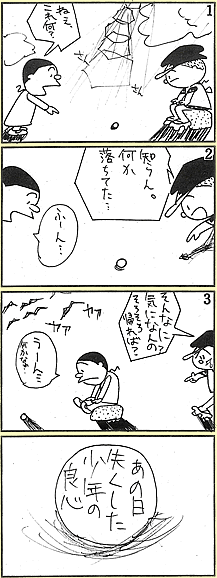 1
ねぇ、
これ何?
2
知らん。
何か
落ちてた…
ふーん…
3
そんなに
気になんの?
そろそろ
帰れば?
カァ
カァ
うーん…
何かなぁ…
あの日
失くした
少年の
良心